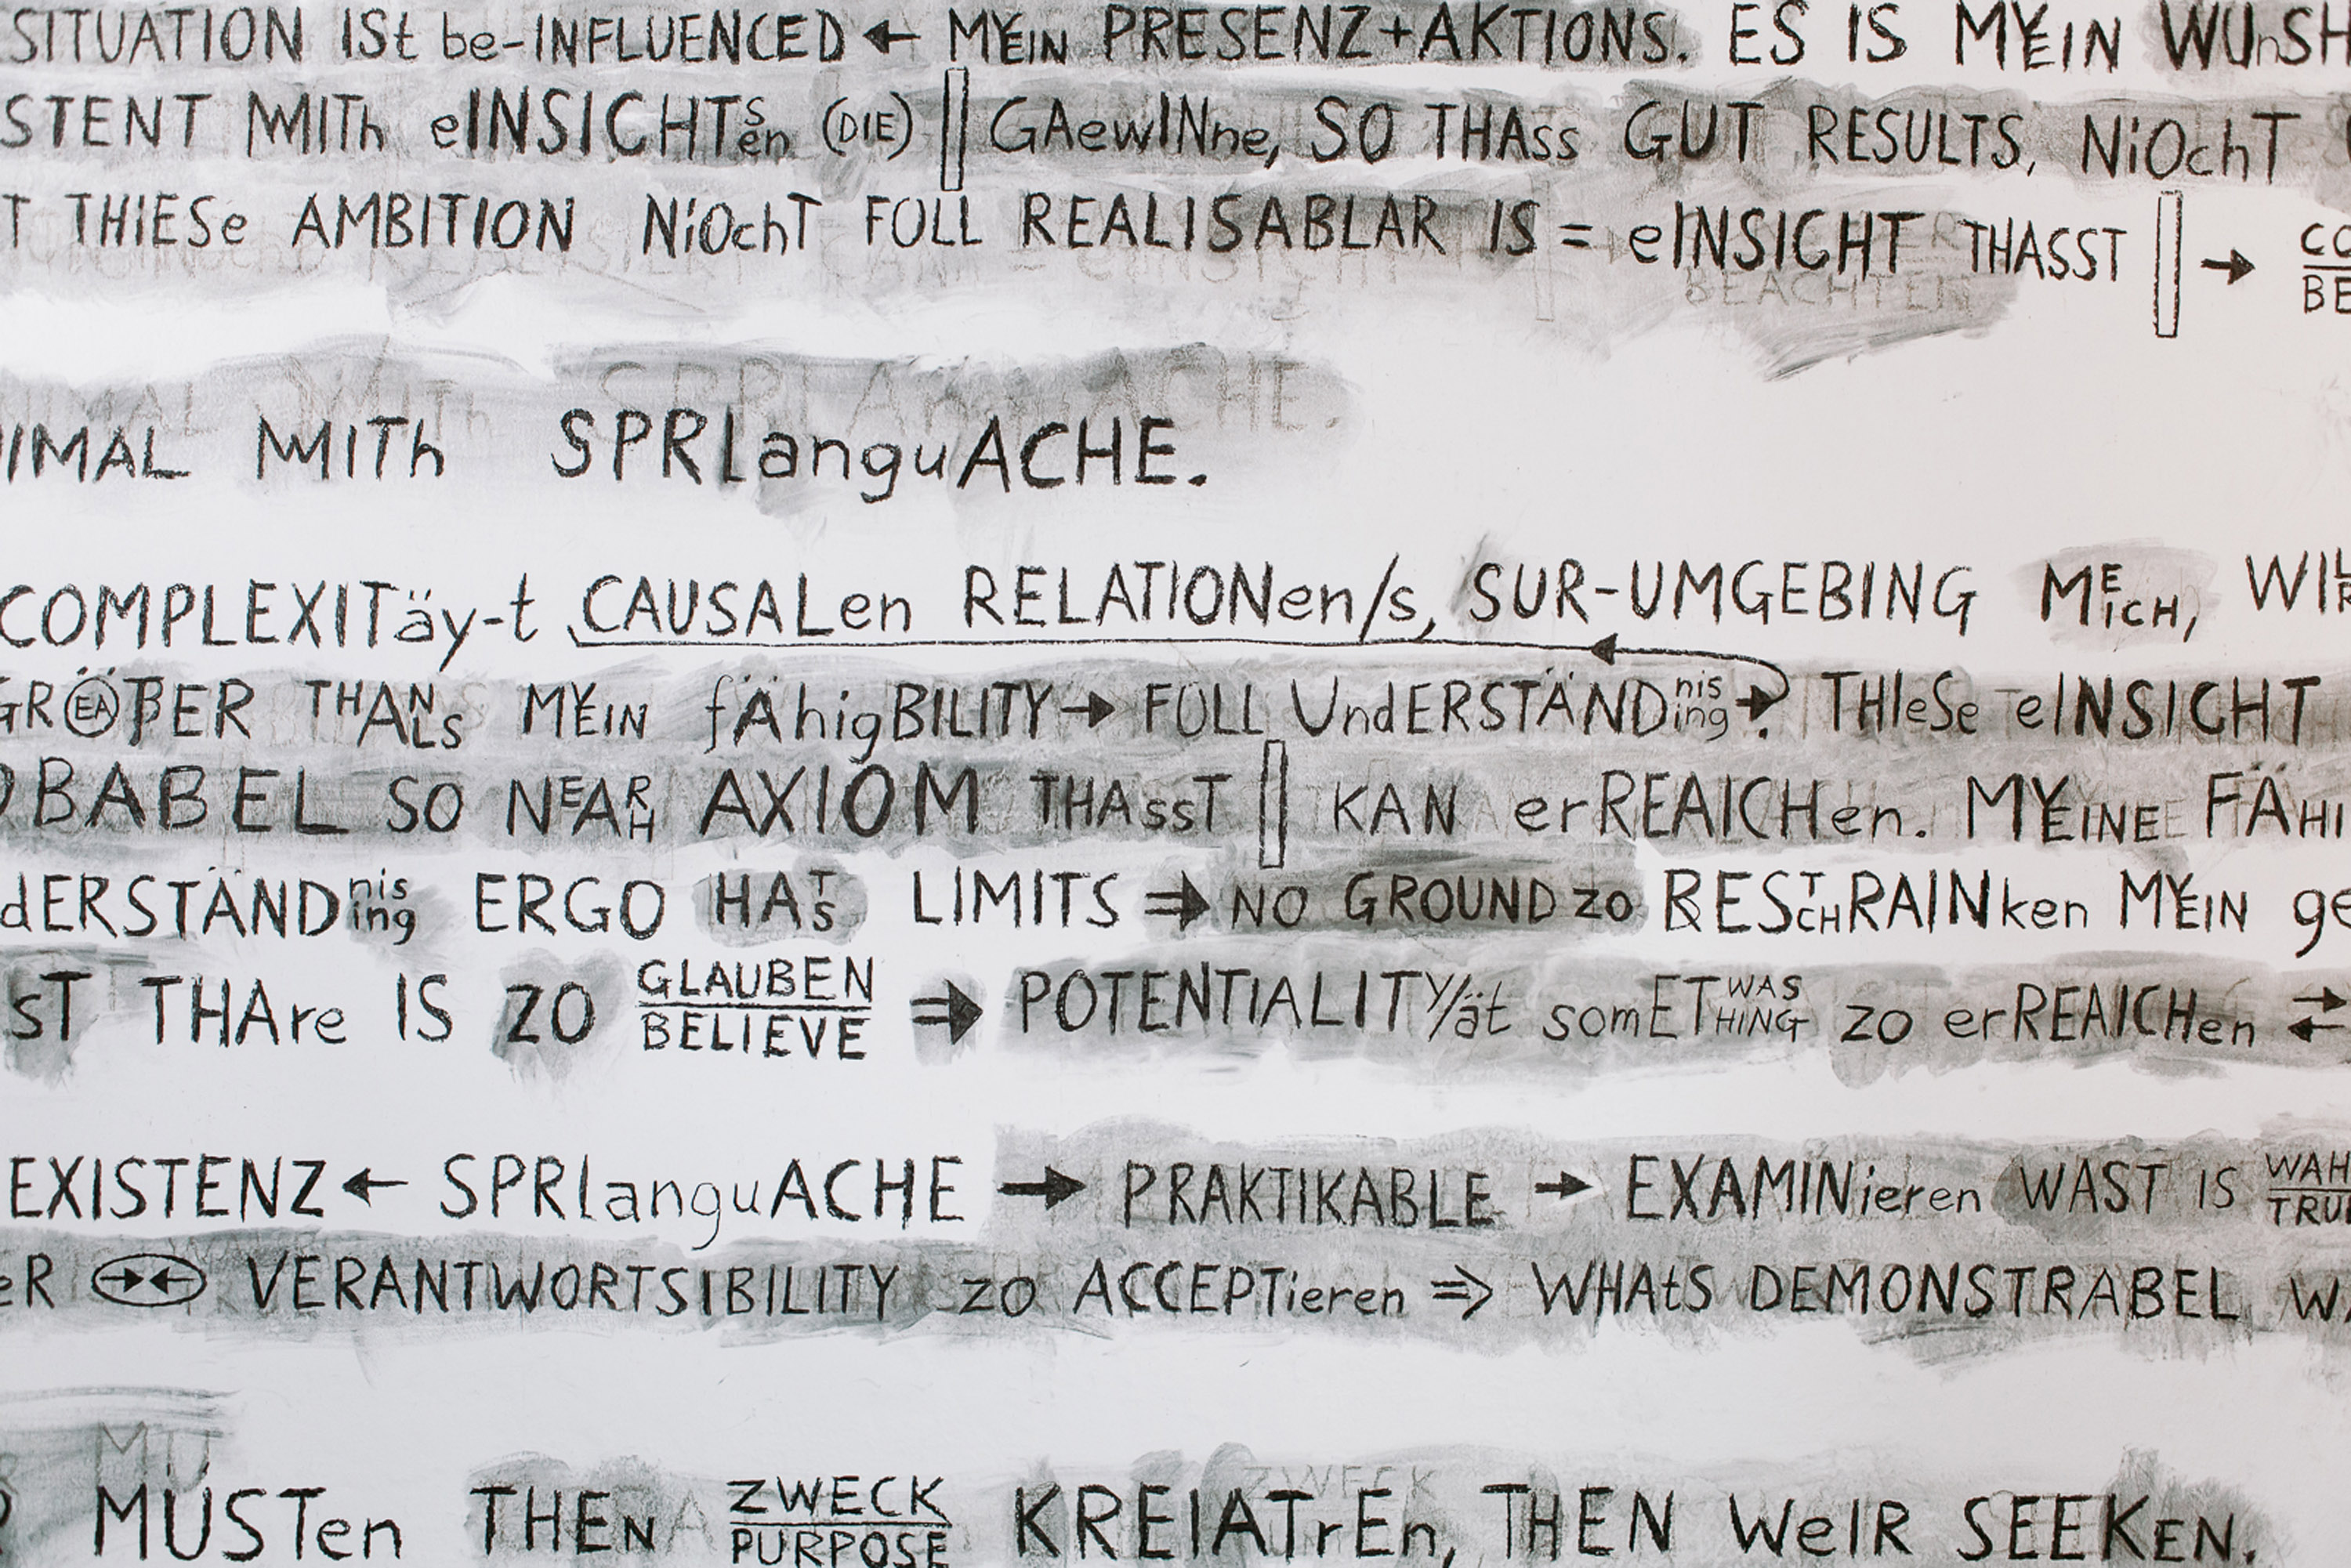 SITUATION ISt be-INFLUENCED ← MYEIN PRESENZ+AKTIONS. ES IS MYEIN WUnSH
STENT MITh eINSICHTSen (DIE) || GAewINne, SO THAss GUT RESULTS, NiOchT
T THIESe AMBITION NiOchT FULL REALISABLAR IS = eINSICHT THASST || → CO BE
IMAL MITh SPRlanguACHE.
COMPLEXITäy-t CAUSALen RELATIONen/s, SUR-UMGEBING MEICH, WI
GRÖEAßER THANLS MYEIN fÄhigBILITY → FULL UndERSTÄNDnising → ? THIeSe eINSICHT
OBABEL SO NEARH AXIOM THAssT || KAN erREAICHen. MYEINE FÄHI
dERSTÄNDnising ERGO HATS LIMITS ⇒ NO GROUND ZO RESTCHRAINken MYEIN ge
sT THAre IS ZO GLAUBEN BELIEVE ⇒ POTENTIALITY/ät somETWASHING ZO erREAICHen ⇄
EXISTENZ ← SPRlanguACHE → PRAKTIKABLE → EXAMINieren WAST IS WAH TRU
eR →← VERANTWORTSIBILITY ZO ACCEPTieren ⇒ WHAtS DEMONSTRABEL W
MUSTen THEN ZWECK PURPOSE KREIATrEn, THEN WeIR SEEKEN.